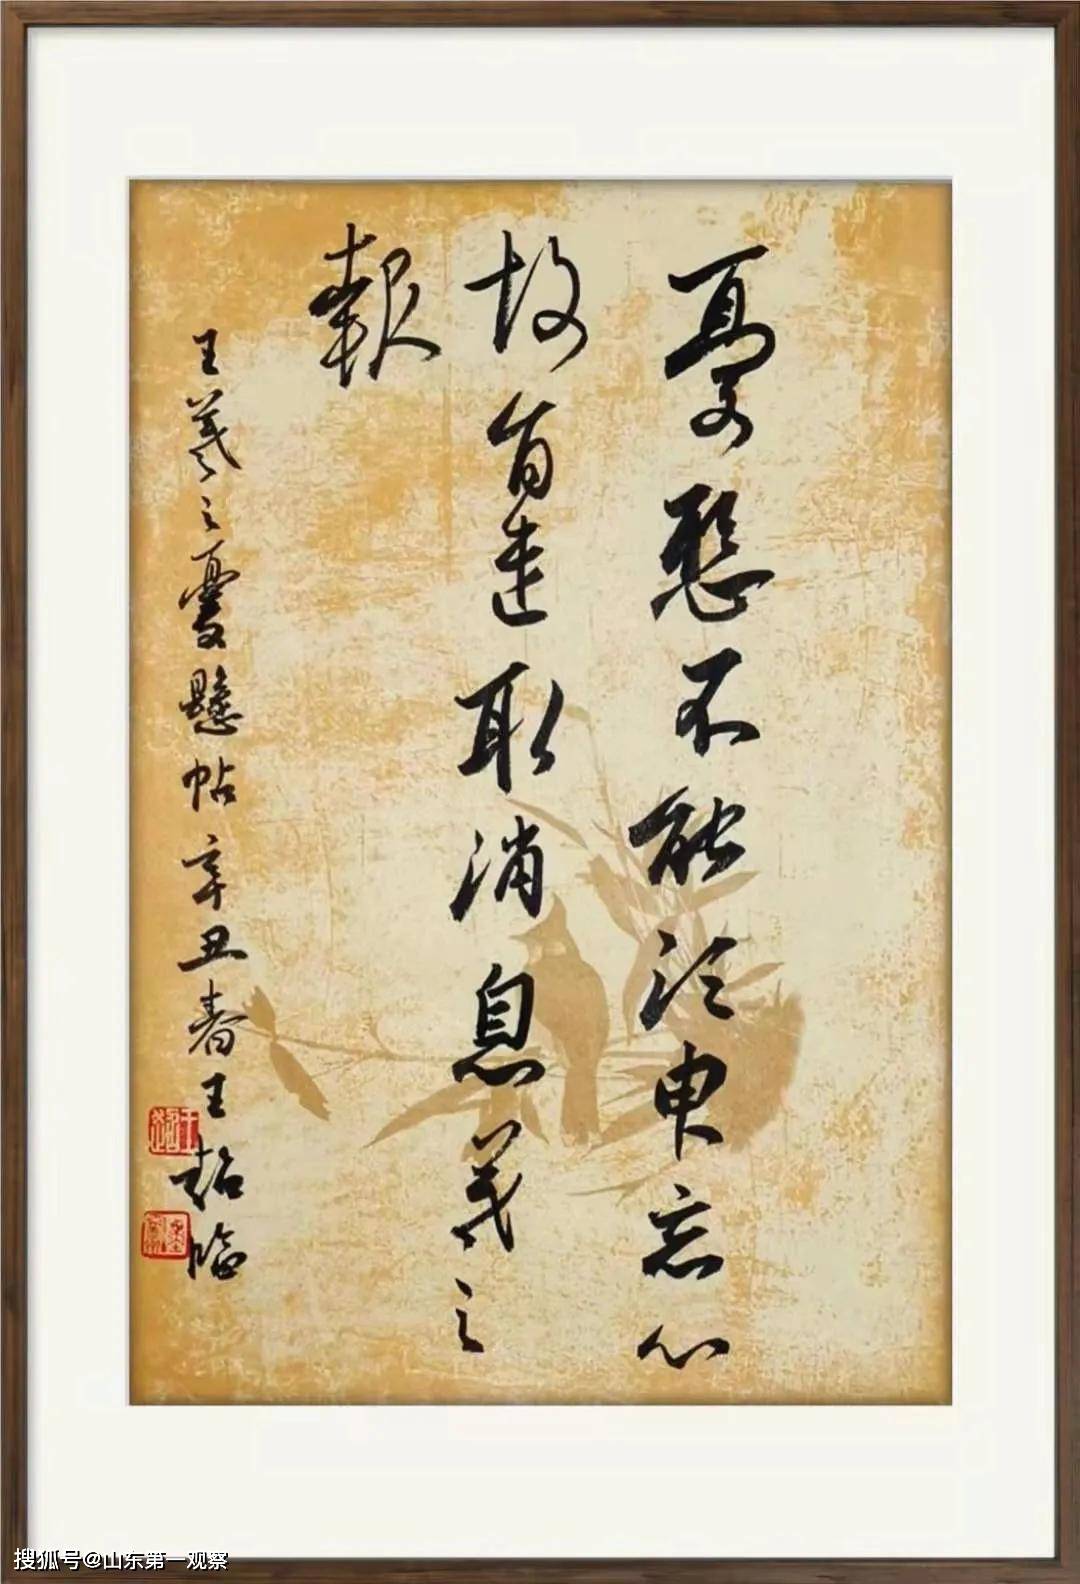 憂懸不能須臾忘心
故旨遣取消息羲之
報
王羲之憂懸帖辛丑春王超臨
搜狐号@山东第一观察